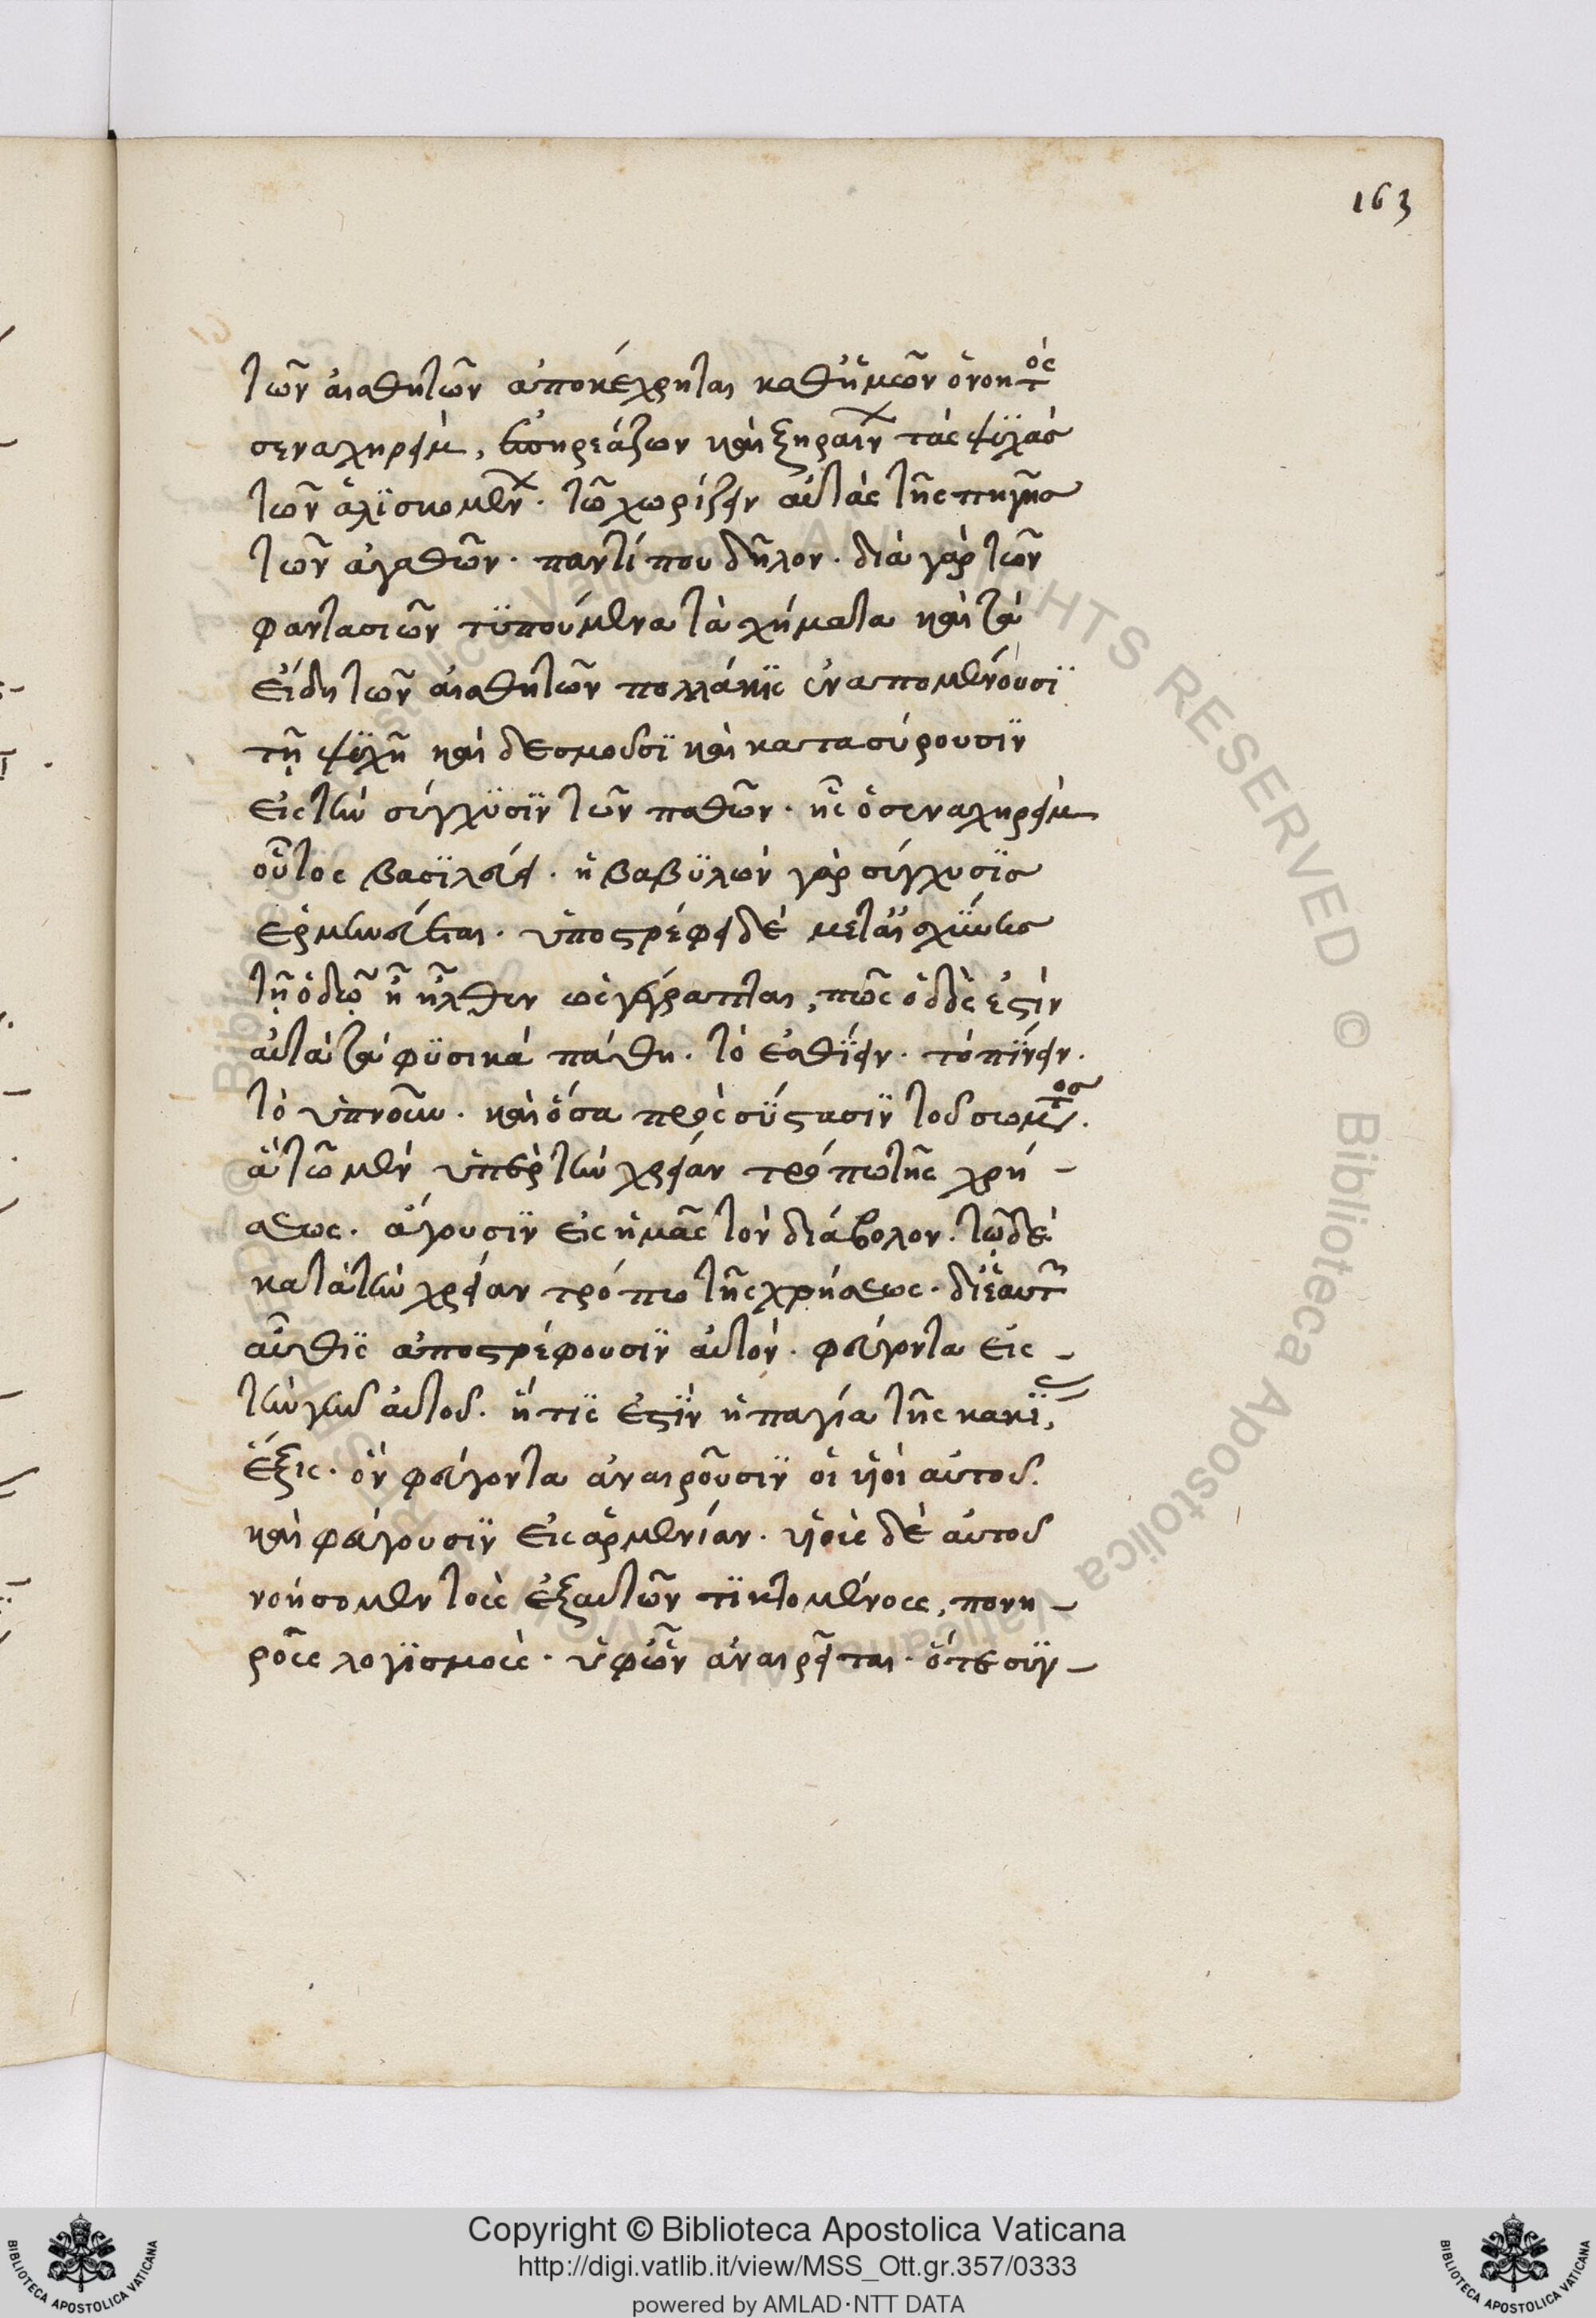 163
τῶν αἰσθητῶν ἀποκέχρηται καθ' ἡμῶν ὁ νοητὸς
σεναχηρείμ, ἐπηρεάζων καὶ ξηραίνων τὰς ψυχὰς
τῶν ἁλισκομένων. τῶ χωρίζειν αὐτὰς τῆς πηγῆς
τῶν ἀγαθῶν. παντί που δῆλον. διὰ γὰρ τῶν
φαντασιῶν τυπούμενα τὰ σχήματα καὶ τὰ
εἴδη τῶν αἰσθητῶν πολλάκις ἐναπομένουσι
τῇ ψυχῇ καὶ δεσμοῦσι καὶ κατασύρουσιν
εἰς τὴν σύγχυσιν τῶν παθῶν. ἧς ὁ σεναχηρεὶμ
οὗτος βασιλεύει. ἡ βαβυλὼν γὰρ σύγχυσις
ἑρμηνεύεται. ὑποστρέφει δὲ μετ' αἰσχύνης
τῇ ὁδῷ ᾗ ἦλθεν ὡς γέγραπται, πῶς ὁδός ἐστιν
αὐτὰ τὰ φυσικὰ πάθη. τὸ ἐσθίειν. τὸ πίνειν.
τὸ ὑπνοῦν. καὶ ὅσα πρὸς σύστασιν τοῦ σώματος.
ἃ τῶ μὲν ὑπὲρ τὴν χρείαν τρόπω τῆς χρή-
σεως. ἄγουσιν εἰς ἡμᾶς τὸν διάβολον. τῷ δὲ
κατὰ τὴν χρείαν τρόπω τῆς χρήσεως. δι' ἑαυτῶν
αὖθις ἀποστρέφουσιν αὐτὸν. φεύγοντα εἰς
τὴν γῆν αὐτοῦ. ἥτις ἐστὶν ἡ παγία τῆς κακίας
ἕξις. ὃν φεύγοντα ἀναιροῦσιν οἱ υἱοὶ αὐτοῦ.
καὶ φεύγουσιν εἰς ἀρμενίαν. υἱοὺς δὲ αὐτοῦ
νοήσομεν τοὺς ἐξ αὐτῶν τικτομένους, πονη-
ροὺς λογισμοὺς. ὑφ' ὧν ἀναιρεῖται. ὅτε συγ-
Copyright © Biblioteca Apostolica Vaticana
http://digi.vatlib.it/view/MSS_Ott.gr.357/0333
powered by AMLAD·NTT DATA